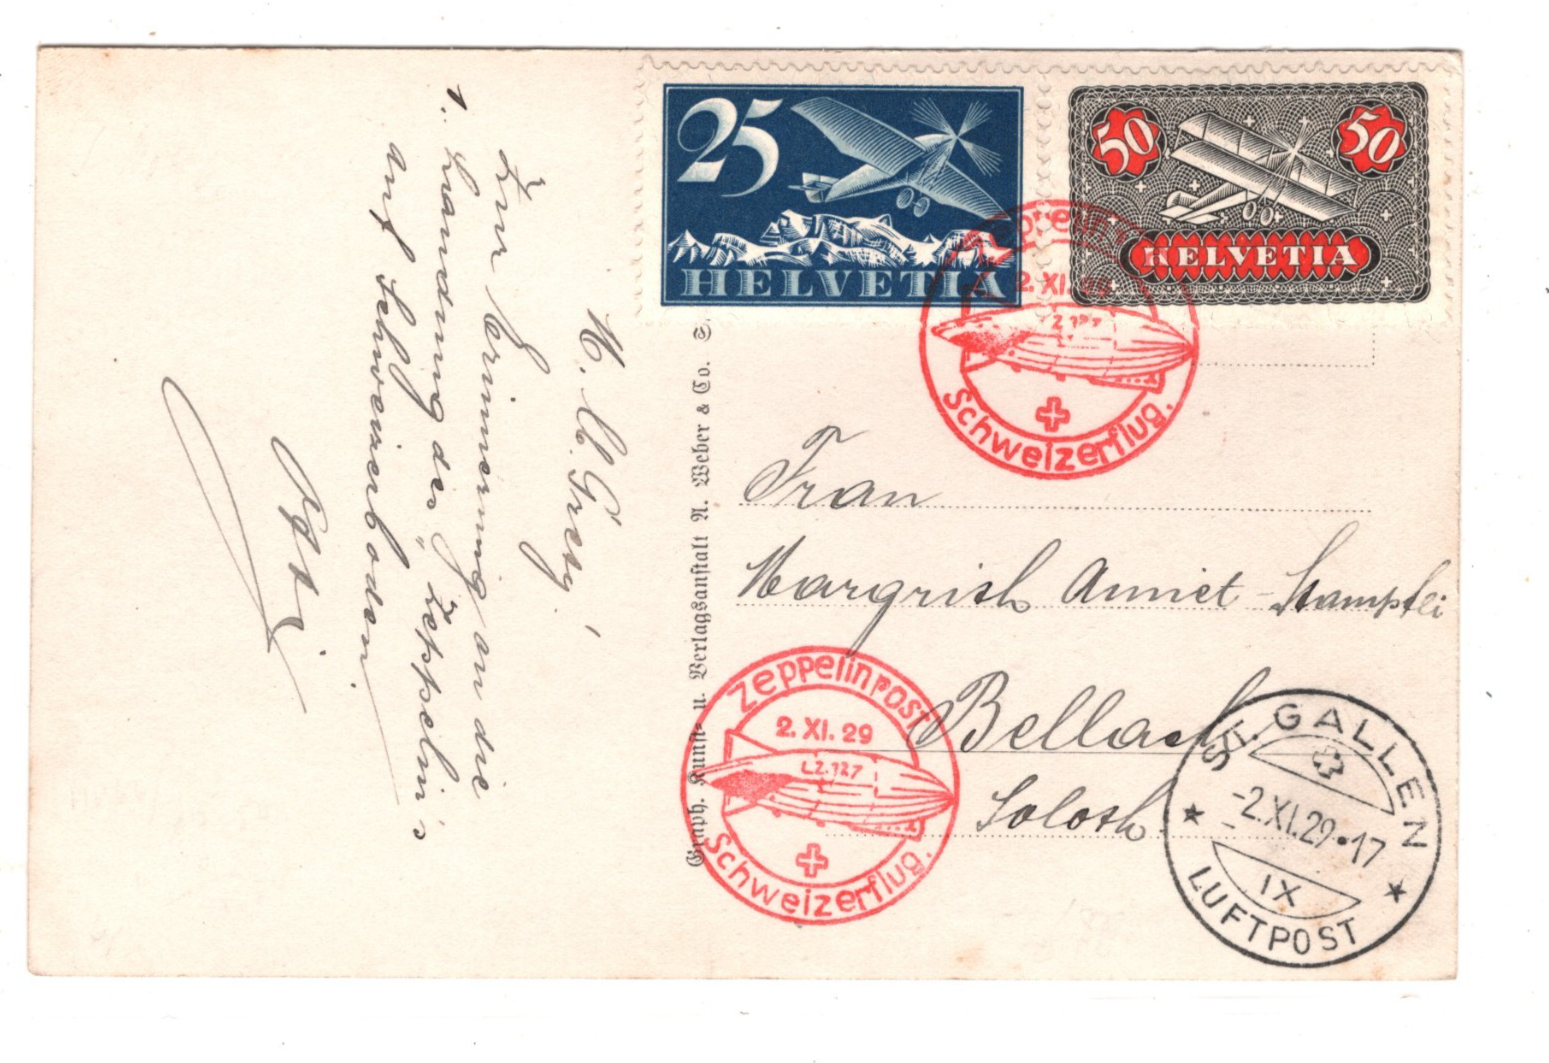 25
HELVETIA
50
50
HELVETIA
2. XI. 29
LZ 127
Schweizerflug.
M. l. Grety!
Zur Erinnerung an die
1. Landung des „Zeppelin's
auf Schweizerboden.
Graph. Kunst- u. Verlagsanstalt A. Weber & Co. S
Frau
Margrith Amiet-Stampfli
Bellach
Soloth.
Zeppelinpost
2. XI. 29
LZ.127
Schweizerflug.
ST. GALLEN
-2.XI.29•17
IX
LUFTPOST